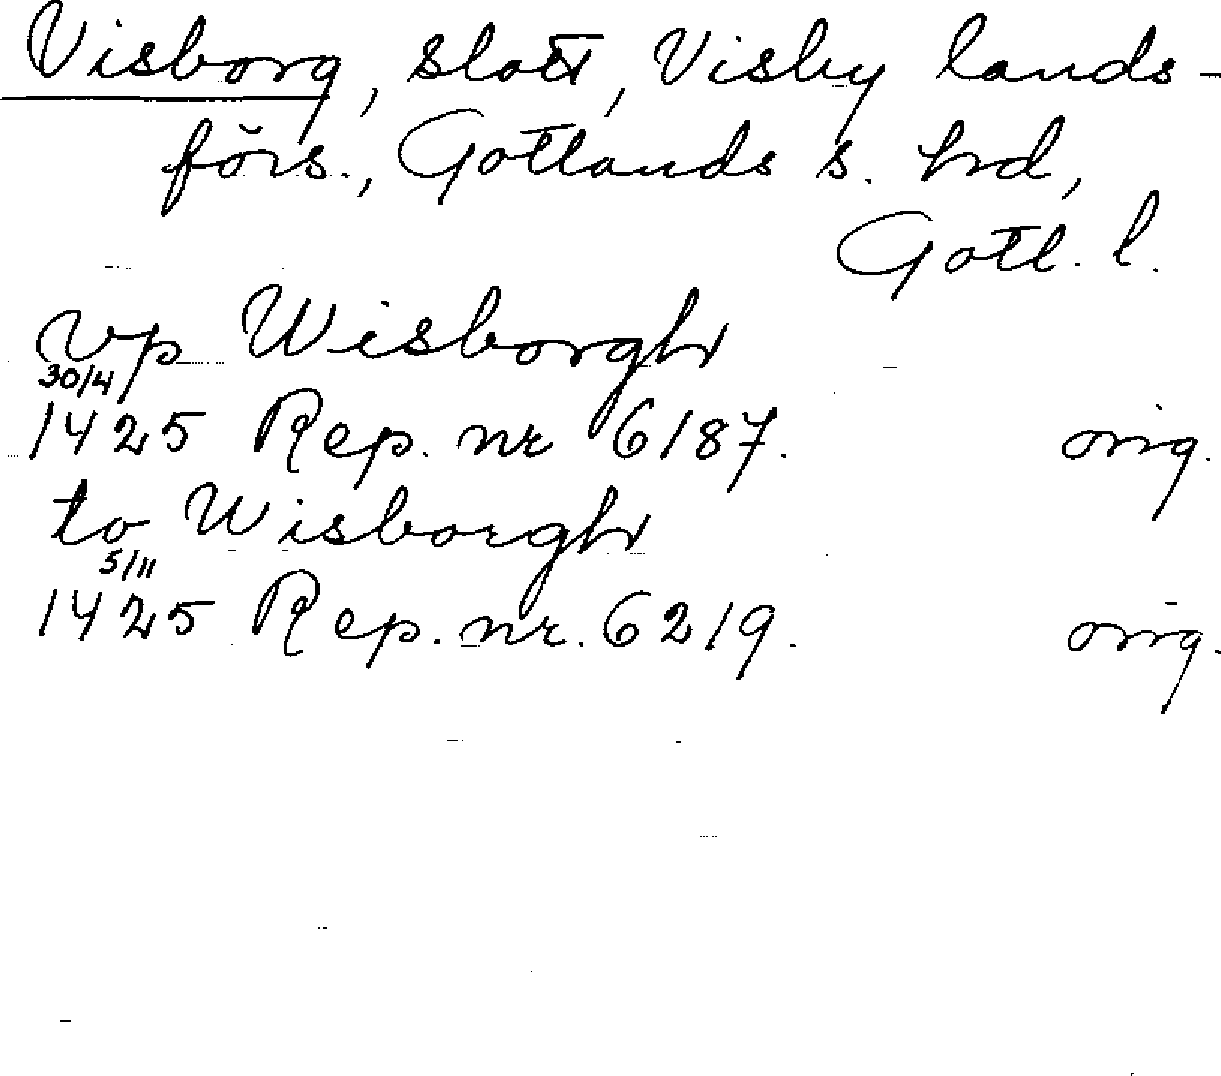 Visborg, slott, Visby lands-
förs., Gotlands s. hrd,
Gotl. l.
vp Wisborgh
30/4
1425 Rep. nr 6187. orig.
to Wisborgh
5/11
1425 Rep. nr. 6219. orig.